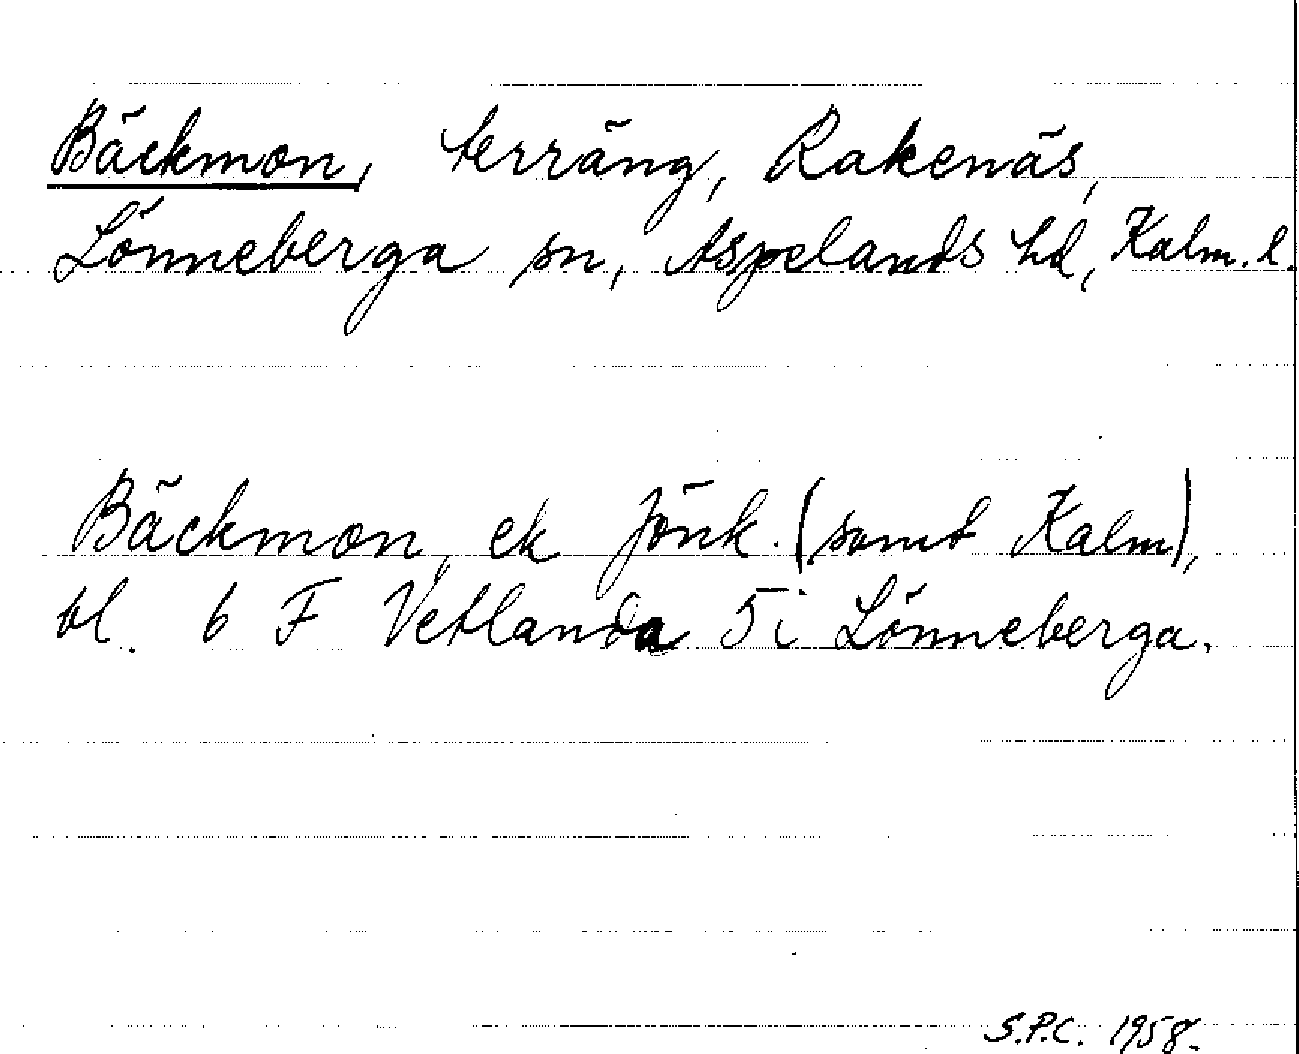 Bäckmon, terräng, Rakenäs,
Lönneberga sn, Aspelands hd, Kalm. l.
Bäckmon, ek Jönk. (samt Kalm),
bl. 6 F Vetlanda 5 i Lönneberga.
S.P.C. 1958.